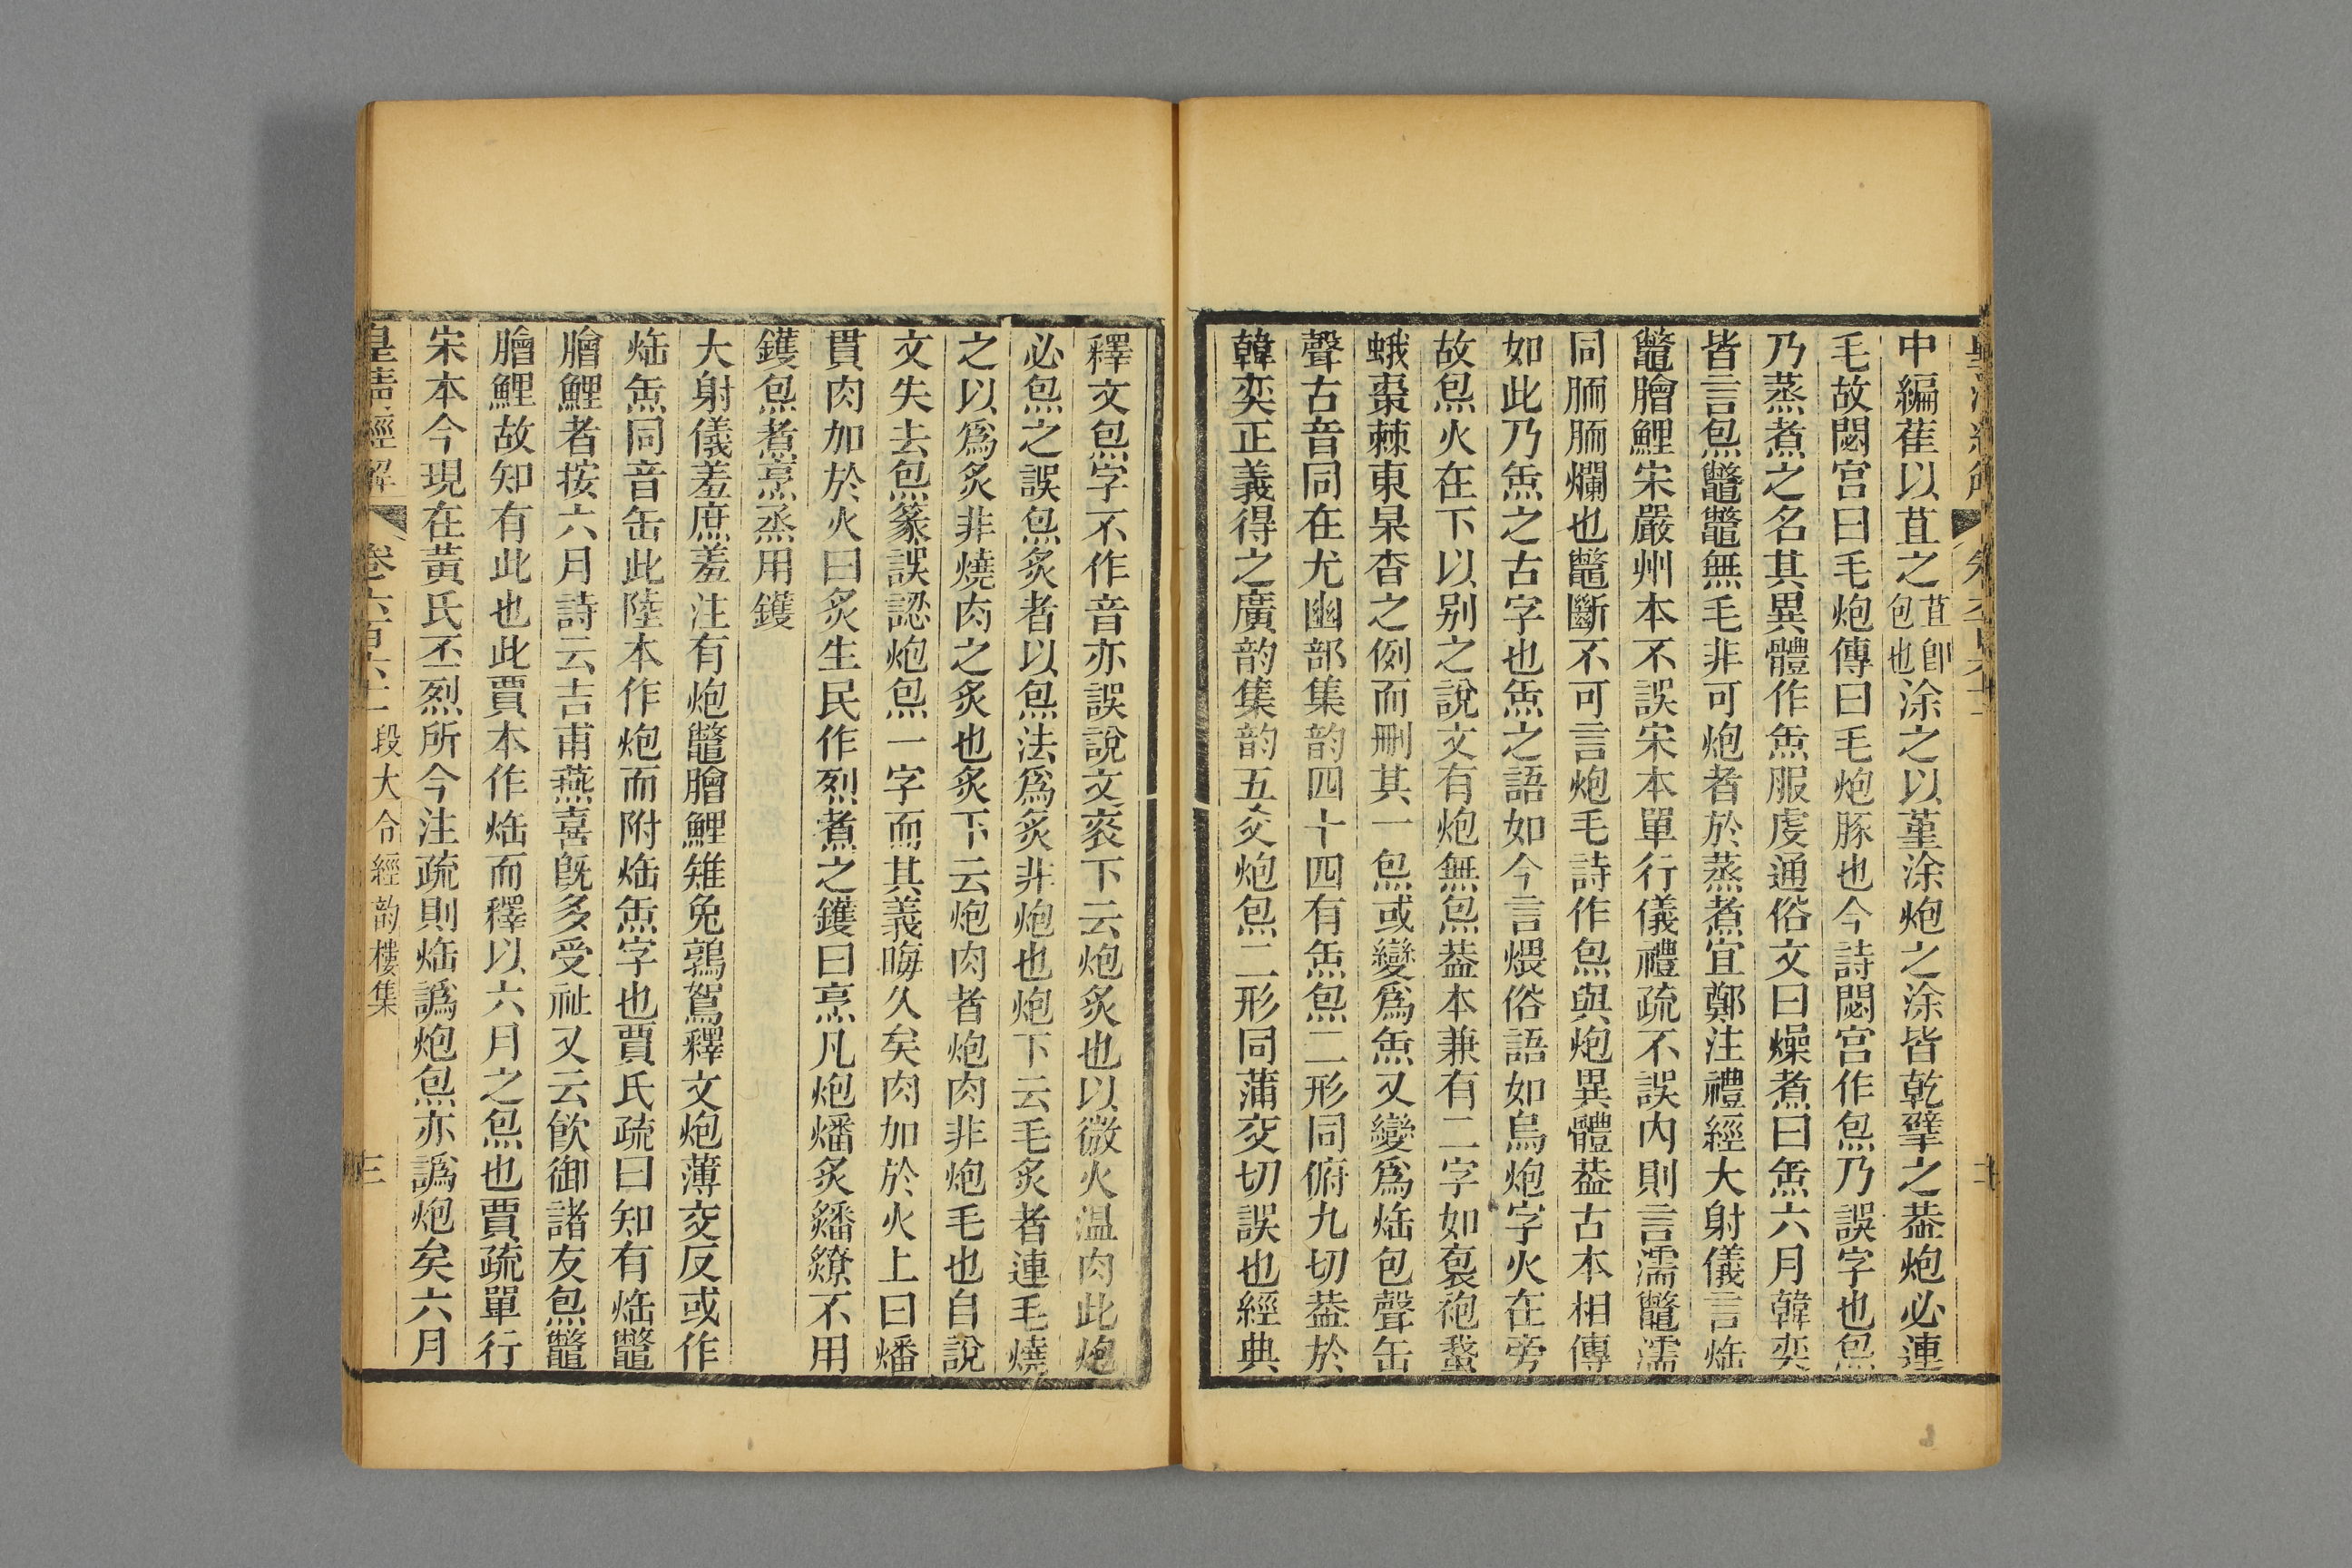 中編萑以苴之苴卽包也涂之以墐涂炮之涂皆乾擘之葢炮必連
毛故閟宮曰毛炮傳曰毛炮豚也今詩閟宮作炰乃誤字也炰
乃蒸煮之名其異體作缹服虔通俗文曰燥煮曰缹六月韓奕
皆言炰鼈鼈無毛非可炮者於蒸煮宜鄭注禮經大射儀言𤇢
鼈膾鯉宋嚴州本不誤宋本單行儀禮疏不誤內則言濡鼈濡
同胹胹爛也鼈斷不可言炮毛詩作炰與炮異體葢古本相傳
如此乃缹之古字也缹之語如今言煨俗語如烏炮字火在旁
故炰火在下以别之說文有炮無炰葢本兼有二字如裒袍蝥
蛾棗棘東杲杳之例而刪其一炰或變爲缹又變爲𤇢包聲缶
聲古音同在尤幽部集韵四十四有缹炰二形同俯九切葢於
韓奕正義得之廣韵集韵五爻炮炰二形同蒲交切誤也經典
釋文炰字不作音亦誤說文衮下云炮炙也以微火温肉此炮
必炰之誤炰炙者以炰法爲炙非炮也炮下云毛炙者連毛燒
之以爲炙非燒肉之炙也炙下云炮肉者炮肉非炮毛也自說
文失去炰篆誤認炮炰一字而其義晦久矣肉加於火上曰燔
貫肉加於火曰炙生民作烈煮之鑊曰烹凡炮燔炙繙繚不用
鑊炰煮烹烝用鑊
大射儀羞庶羞注有炮鼈膾鯉雉兔鶉鴽釋文炮薄交反或作
𤇢缹同音缶此陸本作炮而附𤇢缹字也賈氏疏曰知有𤇢鼈
膾鯉者按六月詩云吉甫燕喜旣多受祉又云飮御諸友炰鼈
膾鯉故知有此也此賈本作𤇢而釋以六月之炰也賈疏單行
宋本今現在黃氏丕烈所今注疏則𤇢譌炮炰亦譌炮矣六月
皇清經解 卷六百六十 段大令經韵樓集 三